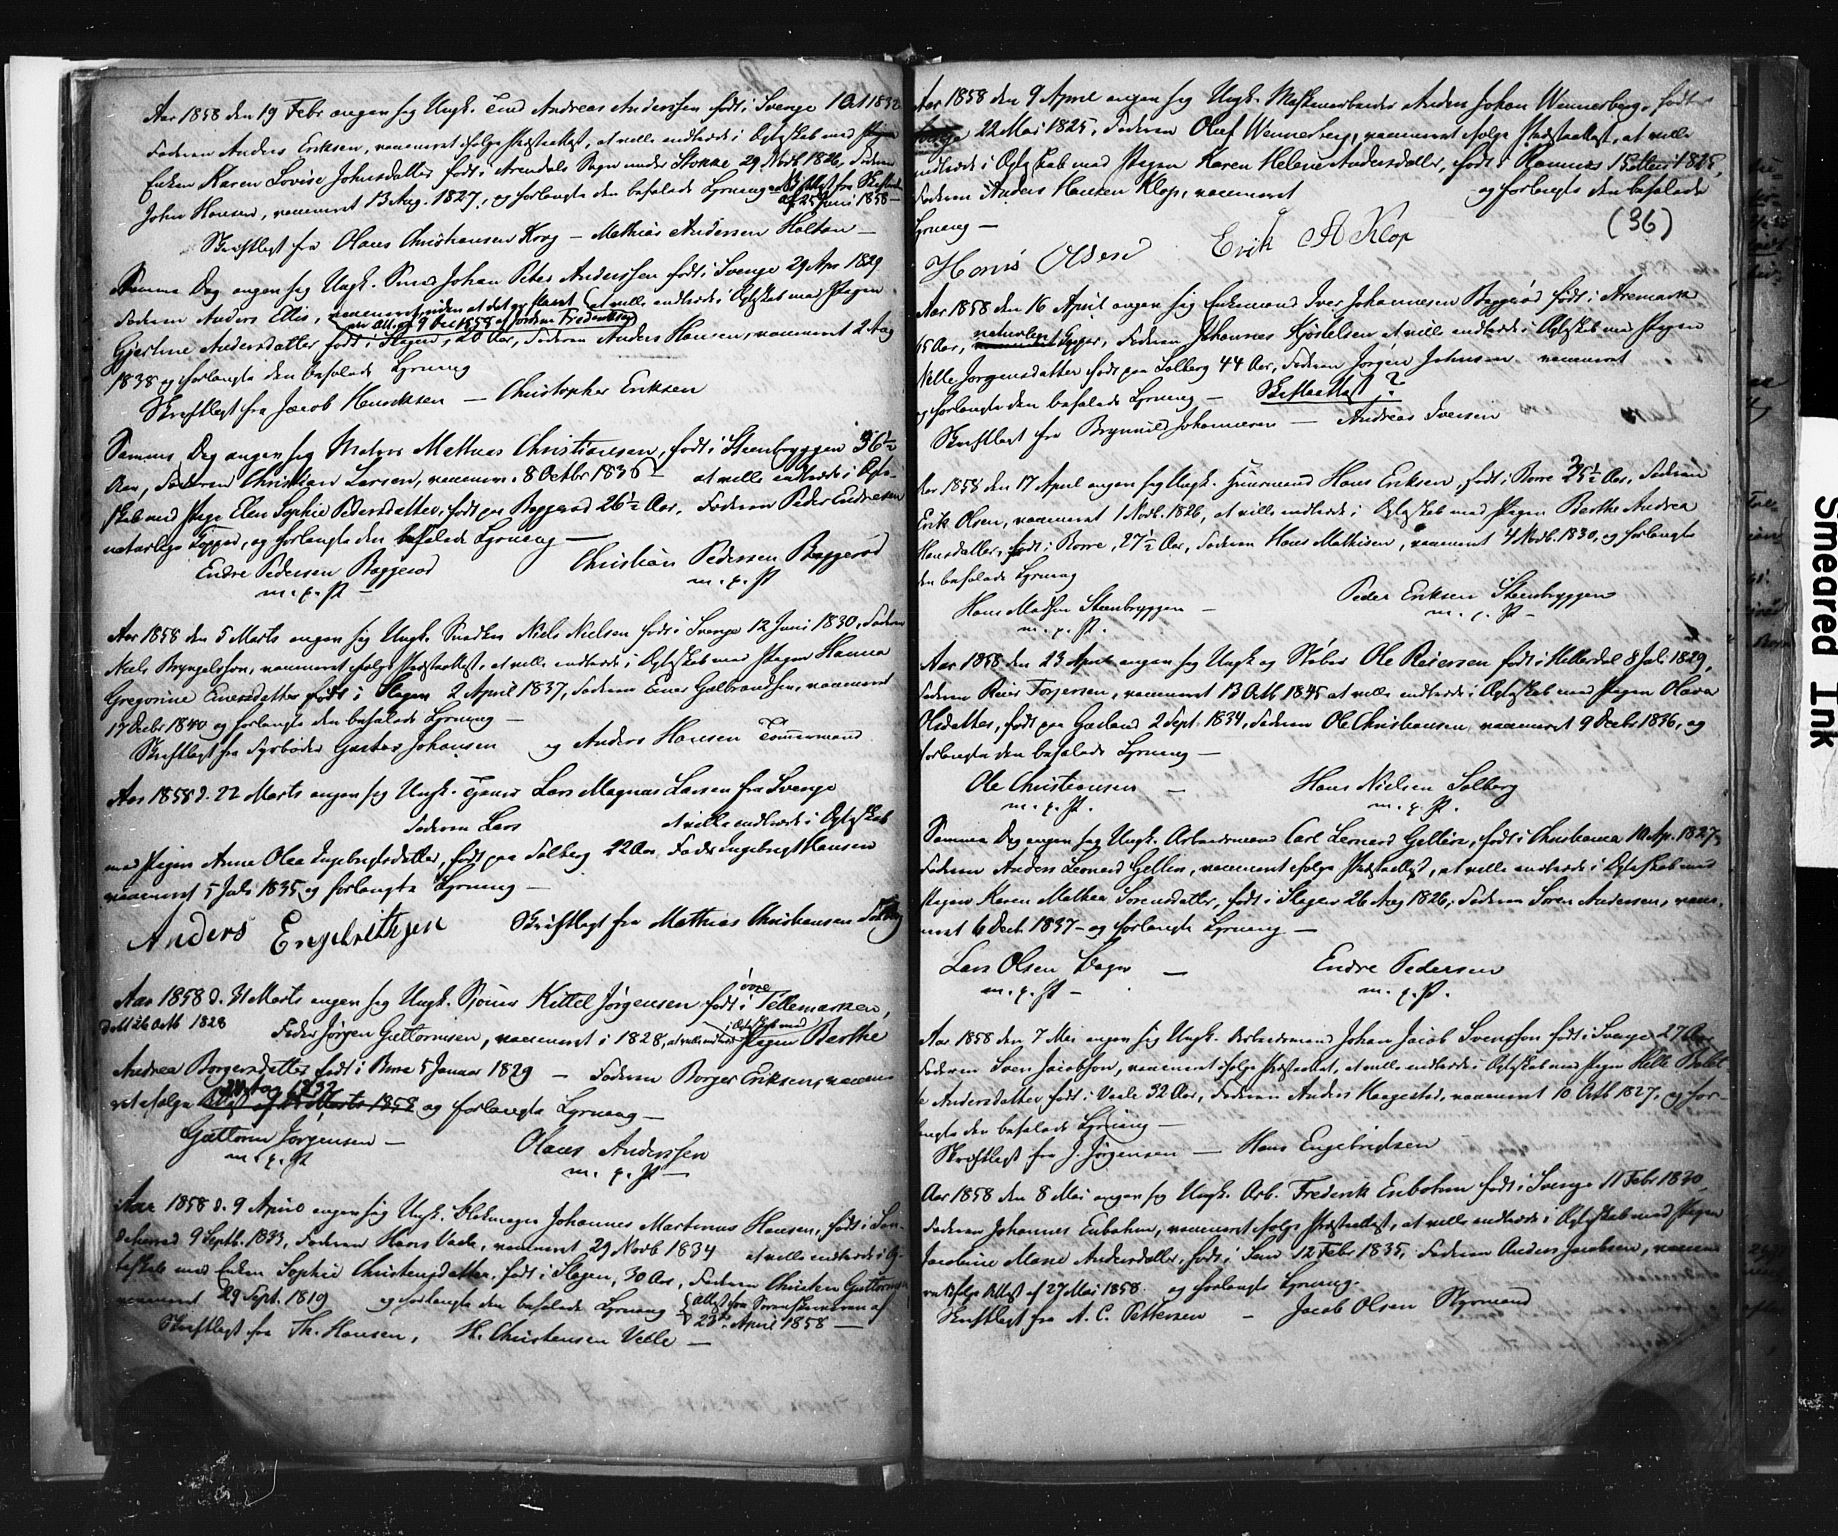 Aar 1858 den 19 Febr angav sig Ungk. Andreas Anderssen født i Sverige 1 Oct 1832
Faderen Anders Eriksen, vaccineret ifølge Præsteattest, at ville indtræde i Ægteskab med Pigen
Enken Karen Lovise Johnsdatter født i Arendals Sogn under Stokke 29 1826, Faderen
John Hansen, vaccineret 13 Aug. 1827, og forlangte den befalede Lysning Attest fra Skifteretten
af 25 Juni 1858 –
Skriftligt fra Olaus Christiansen Korg – Mathias Andersen Holtan –
Samme Dag angav sig Ungk. Smed Johan Peter Anderssen født i Sverige 29 Apr 1829
Faderen Anders Ellis, at ville indtræde i Ægteskab med Pigen
Gjertine Andersdatter født i Slagen, 20 Aar, Faderen Anders Hansen, vaccineret 2 Aug
1838 og forlangte den befalede Lysning
Skriftligt fra Jacob Henriksen – Christopher Eriksen
Samme Dag angav sig Matros Mathias Christiansen, født i Steenbryggen 36½
Aar, Faderen Christian Larsen, vaccin. 8 Octbr 1836 at ville indtræde i Ægte-
skab med Pige Elen Sophie Pedersdatter, født paa Baggerød 26½ Aar, Faderen Peder Endresen
naturlige Kopper, og forlangte den befalede Lysning –
Endre Pedersen Baggerød Christian Pedersen Baggerød
m. p. P. – m. p. P.
Aar 1858 den 5 Marts angav sig Ungk. Snedker Niels Nielsen født i Sverige 12 Juni 1830, Faderen
Niels Bryngelssøn, vaccineret ifølge Præsteattest, at ville indtræde i Ægteskab med Pigen Hanna
Gregorine Enersdatter født i Slagen 2 April 1837, Faderen Ener Gulbrandsen, vaccineret
17 Decbr 1840 og forlangte den befalede Lysning –
Skriftligt fra Fyrbøder Gustav Johansen og Anders Hansen Tømmermand
Aar 1858 d. 22 Marts angav sig Ungk. Tjener Lars Magnus Larsen fra Sverige
Faderen Lars at ville indtræde i Ægteskab
med Pigen Anne Olea Ingebrigtsdatter, født paa Solberg 22 Aar, Fader Ingebrigt Hansen
vaccineret 5 Juli 1835 og forlangte Lysning –
Anders Engebrithsen Skriftligt fra Mathias Christiansen Solberg
Aar 1858 d. 31 Marts angav sig Ungk. Kittel Jørgensen født i øvre Tellemarken,
døbt 26 Octb 1828 Fader Jørgen Guttormsen, vaccineret i 1828, at ville indtræde i Ægteskab med Pigen Berthe
Andrea Borgersdatter født i Borre 5 Januar 1829 – Faderen Borger Eriksen, vaccine-
ret ifølge Attest af 24 Aug 1832 og forlangte Lysning –
Guttorm Jørgensen – Olaus Anderssen
m. p. P. m. p. P. –
Aar 1858 d. 9 April angav sig Ungk. Johannes Martinus Hansen, født i San-
deherred 9 Septb. 1833, Faderen Hans Vade, vaccineret 29 Novb 1834 at ville indtræde i Æg-
teskab med Enken Sophie Christensdatter, født i Slagen, 30 Aar, Faderen Christen Guttormsen
vaccineret 29 Sept. 1819 og forlangte den befalede Lysning Attest fra Sorenskriveren af
23de April 1858 –
Skriftligt fra Th. Hansen, H. Christensen Velle –
Aar 1858 den 9 April angav sig Ungk. Maskinarbeider Anders Johan Wennerberg, født i
22 Mai 1825, Faderen Oluf Wennerberg, vaccineret ifølge Præsteattest, at ville
indtræde i Ægteskab med Pigen Karen Helene Andersdatter, født i Ramnes 1825,
Faderen Anders Hansen Klop, vaccineret og forlangte den befalede
Lysning – (36)
Hans Olsen Erik A Klop
Aar 1858 den 16 April angav sig Enkemand Iver Johannesen Baggerød født i Aremark
65 Aar, naturlige Kopper, Faderen Johannes Kjøstelsen at ville indtræde i Ægteskab med Pigen
Nelle Jørgensdatter født paa Solberg 44 Aar, Faderen Jørgen Johnsen vaccineret
og forlangte den befalede Lysning – Skifteattest?
Skriftligt fra Brynnild Johannesen – Andreas Iversen
Aar 1858 den 17 April angav sig Ungk. Huusmand Hans Eriksen, født i Borre 35½ Aar, Faderen
Erik Olsen, vaccineret 1 Novb. 1826, at ville indtræde i Ægteskab med Pigen Berthe Andrea
Hansdatter, født i Borre, 27½ Aar, Faderen Hans Mathisen, vaccineret 4 Novb. 1830, og forlangte
den befalede Lysning
Hans Madsen Steenbryggen – Peder Eriksen Steenbryggen
m. p. P. m. p. P. –
Aar 1858 den 23 April angav sig Ungk og Støber Ole Reiersen født i Hitterdal 8 Juli 1829,
Faderen Reier Torjersen, vaccineret 13 Octb 1845 at ville indtræde i Ægteskab med Pigen Olava
Olsdatter, født paa Gaarland 2 Sept. 1834, Faderen Ole Christiansen, vaccineret 9 Decbr 1836, og
forlangte den befalede Lysning –
Ole Christiansen – Hans Nielsen Solberg
m. p. P. m. p. P.
Samme Dag angav sig Ungk. Arbeidsmand Carl Lenard Gellein, født i Christiania 10 Apr. 1827,
Faderen Anders Leonard Gellein, vaccineret ifølge Præsteattest, at ville indtræde i Ægteskab med
Pigen Karen Mathea Sørensdatter, født i Slagen 26 Aug 1826, Faderen Søren Andersen, vacci-
neret 6 Decb. 1837 – og forlangte Lysning –
Lars Olsen – Endre Pedersen
m. p. P. – m. p. P.
Aar 1858 den 7 Mai angav sig Ungk. Arbeidsmand Johan Jacob Svensson født i Sverige 27 Aar
Faderen Sven Jacobson, vaccineret ifølge Præsteattest, at ville indtræde i Ægteskab med Pigen Helle
Andersdatter født i Vaale 32 Aar, Faderen Anders Haagestad, vaccineret 10 Octb 1827, og for-
langte den befalede Lysning –
Skriftligt fra J. Jørgensen – Hans Engebrigtsen
Aar 1858 den 8 Mai angav sig Ungk. Arb. Frederik Enbohm født i Sverige 11 Febr 1830
Faderen Johannes Enbohm, vaccineret ifølge Præsteattest, at ville indtræde i Ægteskab med Pigen
Jacobine Marie Andersdatter, født i Sem 12 Febr 1835, Faderen Anders Jacobsen, vaccine-
ret ifølge Attest af 27 Mai 1858 og forlangte Lysning.
Skriftligt fra A. C. Pettersen – Jacob Olsen Styrmand
Smeared Ink